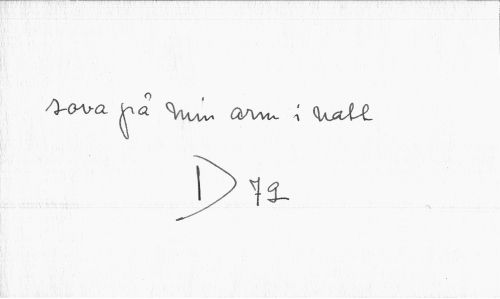 sova på min arm i natt
D 79